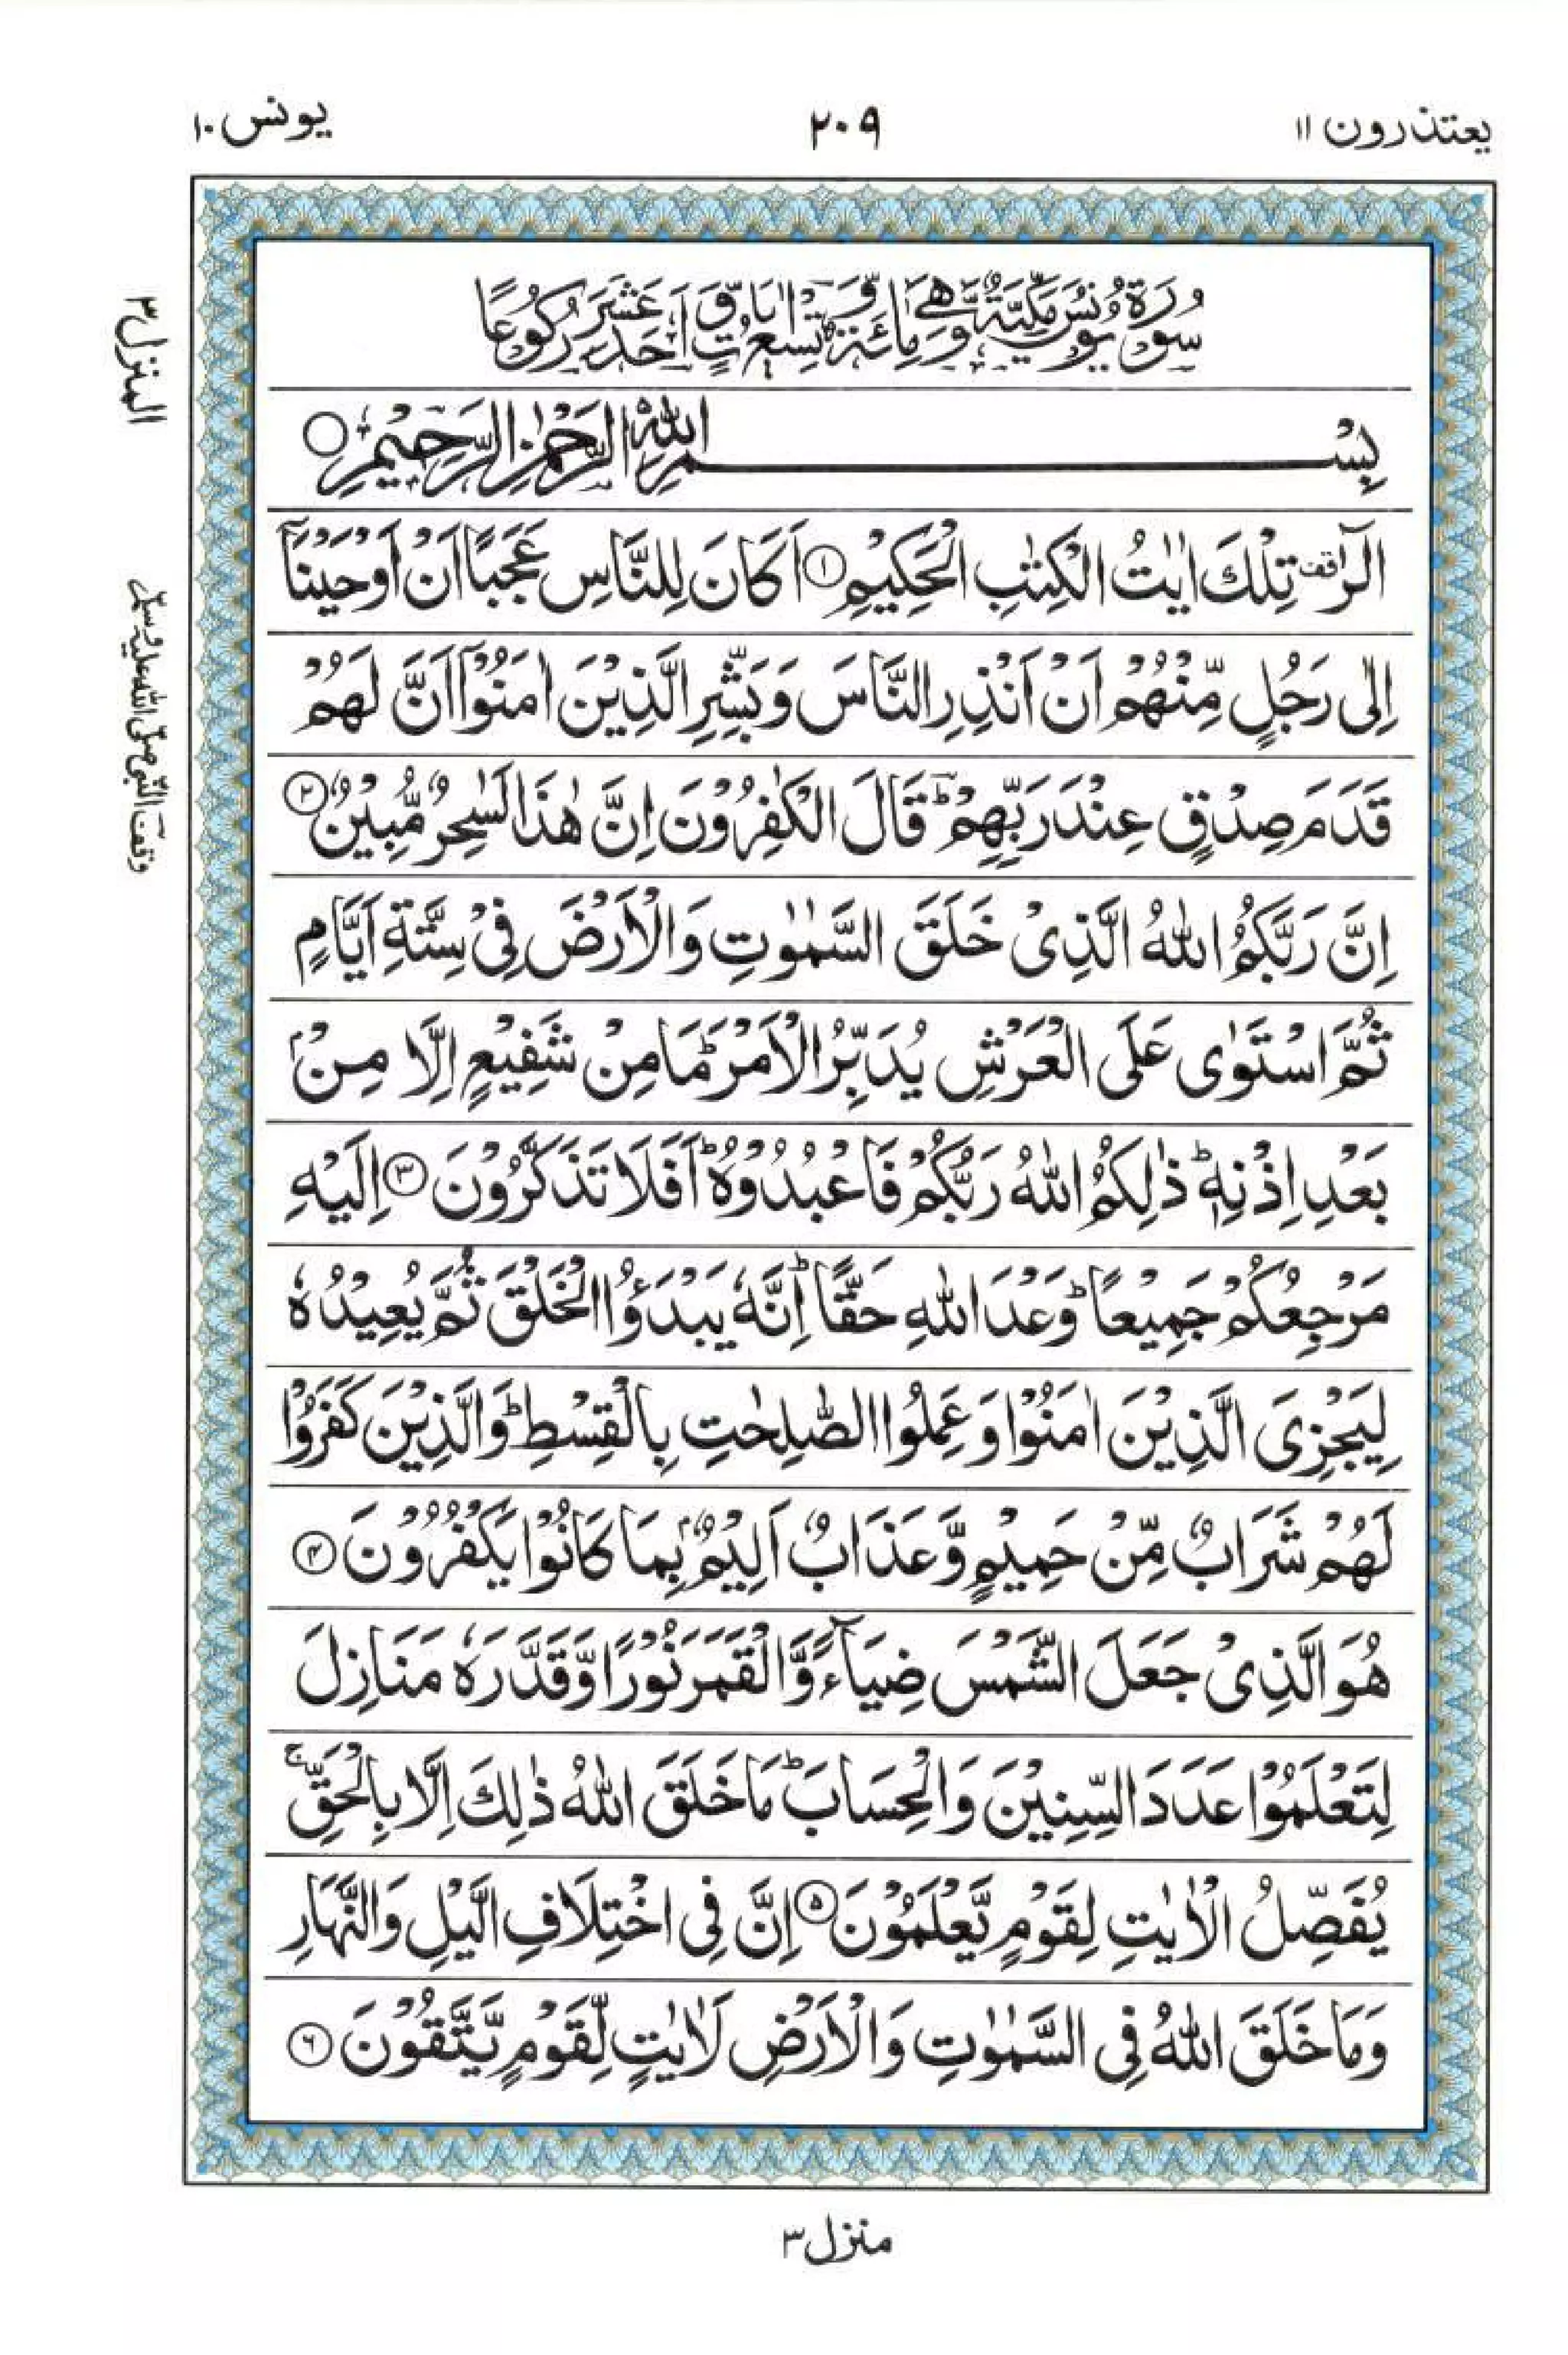 يعتذرون ١١
٢٠٩
يونس ١٠
سُوْرَةُ يُوْنُسَ مَكِّيَّةٌ وَّهِيَ مِائَةٌ وَّتِسْعُ اٰيَاتٍ وَّاَحَدَ عَشَرَ رُكُوْعًا
بِسْمِ اللّٰهِ الرَّحْمٰنِ الرَّحِيْمِ
الٓرٰ ۟قف تِلْكَ اٰيٰتُ الْكِتٰبِ الْحَكِيْمِ ١ اَكَانَ لِلنَّاسِ عَجَبًا اَنْ اَوْحَيْنَاۤ
اِلٰى رَجُلٍ مِّنْهُمْ اَنْ اَنْذِرِ النَّاسَ وَبَشِّرِ الَّذِيْنَ اٰمَنُوْۤا اَنَّ لَهُمْ
قَدَمَ صِدْقٍ عِنْدَ رَبِّهِمْ ؕ قَالَ الْكٰفِرُوْنَ اِنَّ هٰذَا لَسٰحِرٌ مُّبِيْنٌ ٢
اِنَّ رَبَّكُمُ اللّٰهُ الَّذِىْ خَلَقَ السَّمٰوٰتِ وَالْاَرْضَ فِىْ سِتَّةِ اَيَّامٍ
ثُمَّ اسْتَوٰى عَلَى الْعَرْشِ يُدَبِّرُ الْاَمْرَ ؕ مَا مِنْ شَفِيْعٍ اِلَّا مِنْۢ
بَعْدِ اِذْنِهٖ ؕ ذٰلِكُمُ اللّٰهُ رَبُّكُمْ فَاعْبُدُوْهُ ؕ اَفَلَا تَذَكَّرُوْنَ ٣ اِلَيْهِ
مَرْجِعُكُمْ جَمِيْعًا ؕ وَعْدَ اللّٰهِ حَقًّا ؕ اِنَّهٗ يَبْدَؤُا الْخَلْقَ ثُمَّ يُعِيْدُهٗ
لِيَجْزِىَ الَّذِيْنَ اٰمَنُوْا وَعَمِلُوا الصّٰلِحٰتِ بِالْقِسْطِ ؕ وَالَّذِيْنَ كَفَرُوْا
لَهُمْ شَرَابٌ مِّنْ حَمِيْمٍ وَّعَذَابٌ اَلِيْمٌۢ بِمَا كَانُوْا يَكْفُرُوْنَ ٤
هُوَ الَّذِىْ جَعَلَ الشَّمْسَ ضِيَآءً وَّالْقَمَرَ نُوْرًا وَّقَدَّرَهٗ مَنَازِلَ
لِتَعْلَمُوْا عَدَدَ السِّنِيْنَ وَالْحِسَابَ ؕ مَا خَلَقَ اللّٰهُ ذٰلِكَ اِلَّا بِالْحَقِّ ۚ
يُفَصِّلُ الْاٰيٰتِ لِقَوْمٍ يَّعْلَمُوْنَ ٥ اِنَّ فِى اخْتِلَافِ الَّيْلِ وَالنَّهَارِ
وَمَا خَلَقَ اللّٰهُ فِى السَّمٰوٰتِ وَالْاَرْضِ لَاٰيٰتٍ لِّقَوْمٍ يَّتَّقُوْنَ ٦
المنزل ٣
وقف النبي صلى الله عليه وسلم
منزل ٣